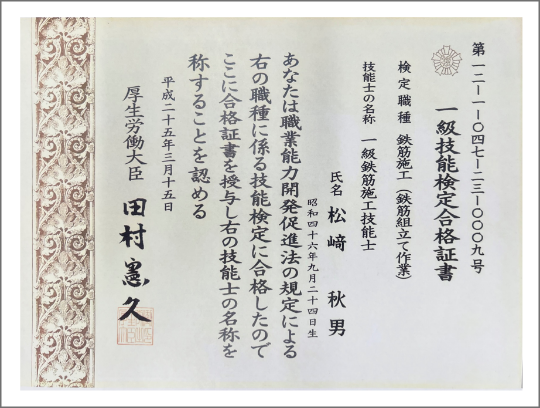 第一二-一-〇四七-二三-〇〇〇九号
一級技能検定合格証書
検定職種 鉄筋施工(鉄筋組立て作業)
技能士の名称 一級鉄筋施工技能士
氏名 松﨑 秋男
昭和四十六年九月二十四日生
あなたは職業能力開発促進法の規定による
右の職種に係る技能検定に合格したので
ここに合格証書を授与し右の技能士の名称を
称することを認める
平成二十五年三月十五日
厚生労働大臣 田村憲久